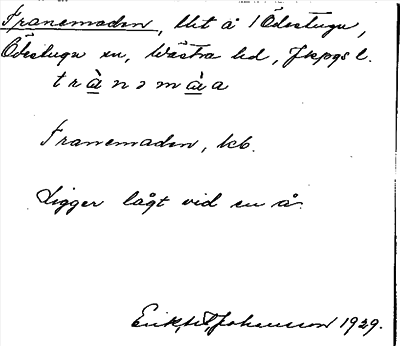 Tranemaden, tlt å 1 Ödestugu,
Ödestugu sn, Västra hd, Jkpgs l.
trànəmàa
Tranemaden, kb.
Ligger lågt vid en å.
Johansson 1929.